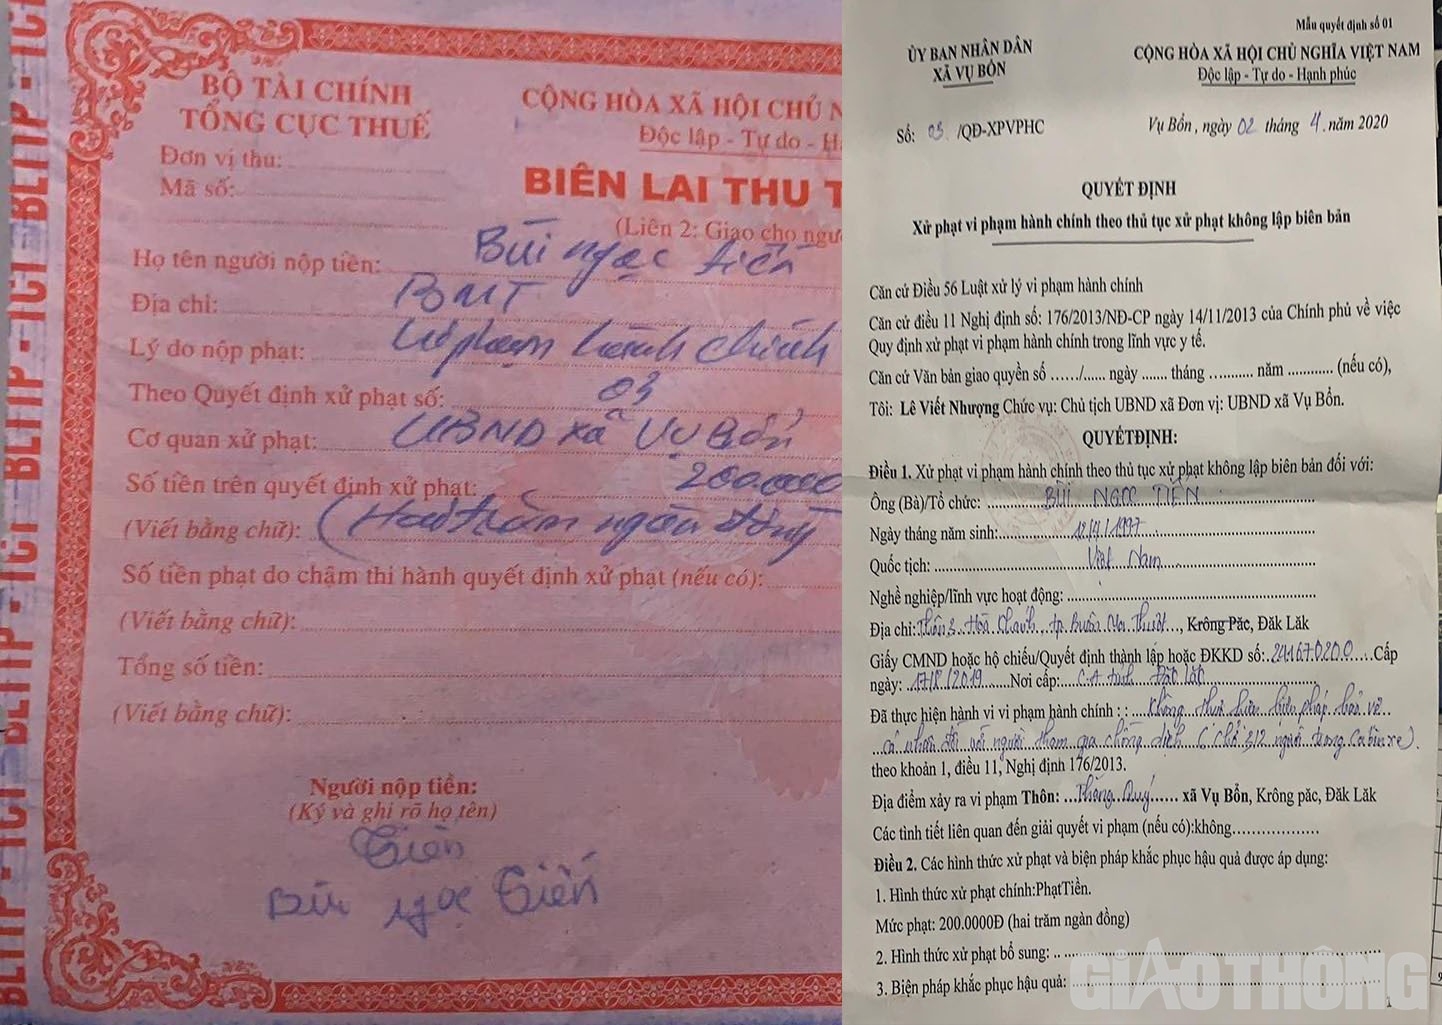 BỘ TÀI CHÍNH
TỔNG CỤC THUẾ
Đơn vị thu:
Mã số:
CỘNG HÒA XÃ HỘI CHỦ N
Độc lập - Tự do - H
BIÊN LAI THU T
(Liên 2: Giao cho ngư
Họ tên người nộp tiền: Bùi ngọc tiến
Địa chỉ: BMT
Lý do nộp phạt: Vi phạm hành chính
Theo Quyết định xử phạt số: 03
Cơ quan xử phạt: UBND xã Vụ Bổn
Số tiền trên quyết định xử phạt: 200.000
(Viết bằng chữ): (Hai trăm ngàn đồng
Số tiền phạt do chậm thi hành quyết định xử phạt (nếu có):
(Viết bằng chữ):
Tổng số tiền:
(Viết bằng chữ):
Người nộp tiền:
(Ký và ghi rõ họ tên)
Tiến
Bùi Ngọc Tiến
BLTTP - TCT BLTTP - TCT BLTTP - TCT BLTTP - TCT
Mẫu quyết định số 01
ỦY BAN NHÂN DÂN
XÃ VỤ BỔN
CỘNG HÒA XÃ HỘI CHỦ NGHĨA VIỆT NAM
Độc lập - Tự do - Hạnh phúc
Số: 03 /QĐ-XPVPHC
Vụ Bổn, ngày 02 tháng 4 năm 2020
QUYẾT ĐỊNH
Xử phạt vi phạm hành chính theo thủ tục xử phạt không lập biên bản
Căn cứ Điều 56 Luật xử lý vi phạm hành chính
Căn cứ điều 11 Nghị định số: 176/2013/NĐ-CP ngày 14/11/2013 của Chính phủ về việc
Quy định xử phạt vi phạm hành chính trong lĩnh vực y tế.
Căn cứ Văn bản giao quyền số ....../...... ngày ....... tháng .......... năm ........... (nếu có),
Tôi: Lê Viết Nhượng Chức vụ: Chủ tịch UBND xã Đơn vị: UBND xã Vụ Bổn.
QUYẾTĐỊNH:
Điều 1. Xử phạt vi phạm hành chính theo thủ tục xử phạt không lập biên bản đối với:
Ông (Bà)/Tổ chức: BÙI NGỌC TIẾN
Ngày tháng năm sinh: 12/4/1997
Quốc tịch: Việt Nam
Nghề nghiệp/lĩnh vực hoạt động:
Địa chỉ: Thôn 3 Hòa Khánh, tp Buôn Ma Thuột, Krông Păc, Đăk Lăk
Giấy CMND hoặc hộ chiếu/Quyết định thành lập hoặc ĐKKD số: 241670200 Cấp
ngày: 17/8/2019 Nơi cấp: C.A tỉnh Đắk Lắk
Đã thực hiện hành vi vi phạm hành chính : : Không thực hiện biện pháp bảo vệ
cá nhân đối với người tham gia chống dịch ( chở 3/2 người trong cabin xe).
theo khoản 1, điều 11, Nghị định 176/2013.
Địa điểm xảy ra vi phạm Thôn: Thăng Quý xã Vụ Bổn, Krông păc, Đăk Lăk
Các tình tiết liên quan đến giải quyết vi phạm (nếu có):không
Điều 2. Các hình thức xử phạt và biện pháp khắc phục hậu quả được áp dụng:
1. Hình thức xử phạt chính:PhạtTiền.
Mức phạt: 200.0000Đ (hai trăm ngàn đồng)
2. Hình thức xử phạt bổ sung:
3. Biện pháp khắc phục hậu quả:
GIAOTHÔNG
1